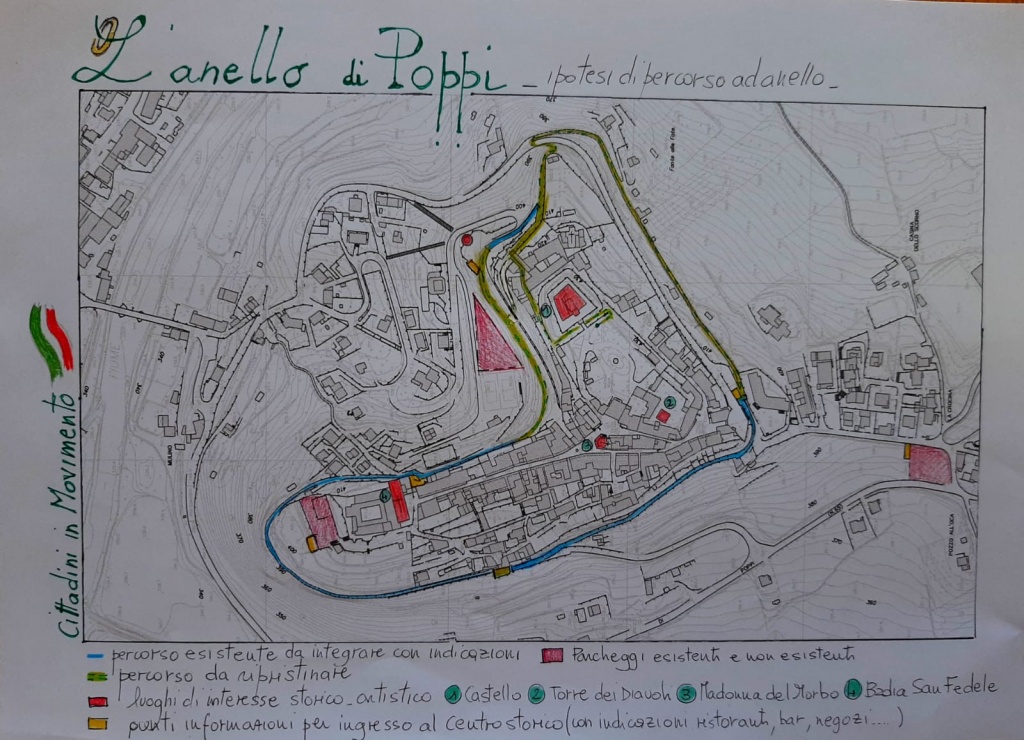 L'anello di Poppi - ipotesi di percorso ad anello -
Cittadini in Movimento
MULINO
CASINA DELLO SODRINO
POZZO ALL'OCA
percorso esistente da integrare con indicazioni
Parcheggi esistenti e non esistenti
percorso da ripristinare
luoghi di interesse storico-artistico ① Castello ② Torre dei Diavoli ③ Madonna del Morbo ④ Badia San Fedele
punti informazioni per ingresso al centro storico (con indicazioni ristoranti, bar, negozi....)